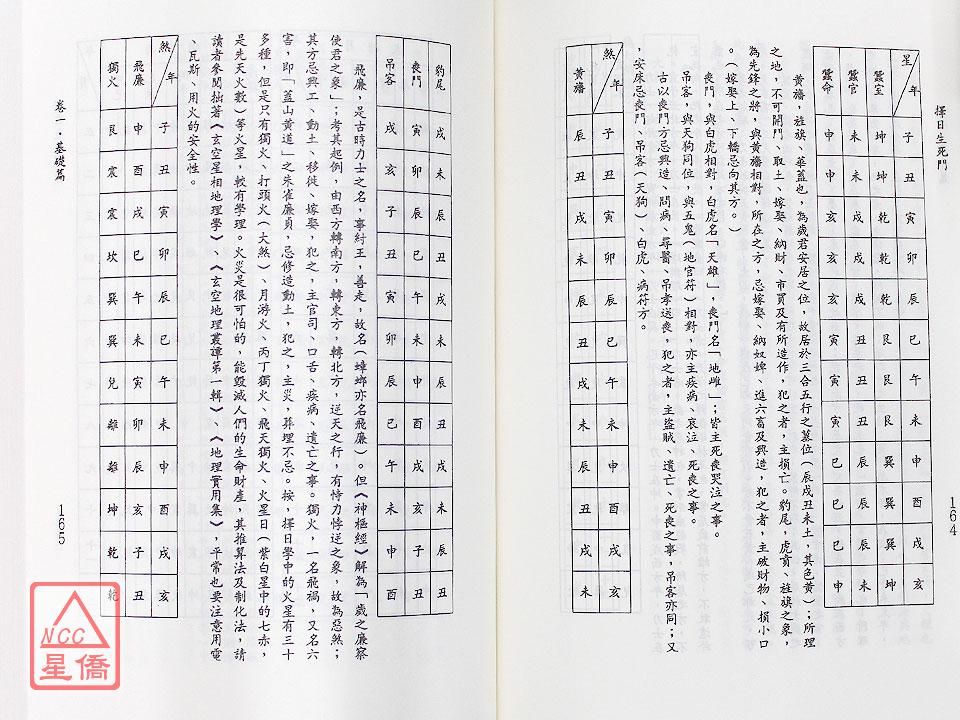 擇日生死門
164
星/年 子 丑 寅 卯 辰 巳 午 未 申 酉 戌 亥
蠶室 坤 坤 乾 乾 乾 艮 艮 艮 巽 巽 巽 坤
蠶官 未 未 戌 戌 戌 丑 丑 丑 辰 辰 辰 未
蠶命 申 申 亥 亥 亥 寅 寅 寅 巳 巳 巳 申
黃旛,旌旗、華蓋也,為歲君安居之位,故居於三合五行之墓位(辰戌丑未土,其色黃);所理
之地,不可開門、取土、嫁娶、納財、市買及有所造作,犯之者,主損亡。豹尾,虎賁、旌旗之象,
為先鋒之將,與黃旛相對,所在之方,忌嫁娶、納奴婢、進六畜及興造,犯之者,主破財物、損小口
。(嫁娶上、下轎忌向其方。)
喪門,與白虎相對,白虎名「天雄」,喪門名「地雌」;皆主死喪哭泣之事。
吊客,與天狗同位,與五鬼(地官符)相對,亦主疾病、哀泣、死喪之事。
古以喪門方忌興造、問病、尋醫、吊孝送喪,犯之者,主盜賊、遺亡、死喪之事,吊客亦同;又
,安床忌喪門、吊客(天狗)、白虎、病符方。
煞/年 子 丑 寅 卯 辰 巳 午 未 申 酉 戌 亥
黃旛 辰 丑 戌 未 辰 丑 戌 未 辰 丑 戌 未
豹尾 戌 未 辰 丑 戌 未 辰 丑 戌 未 辰 丑
喪門 寅 卯 辰 巳 午 未 申 酉 戌 亥 子 丑
吊客 戌 亥 子 丑 寅 卯 辰 巳 午 未 申 酉
飛廉,是古時力士之名,事紂王,善走,故名(蟑螂亦名飛廉)。但《神樞經》解為「歲之廉察
使君之象」;考其起例,由西方轉南方,轉東方,轉北方,逆天之行,有恃力悖逆之象,故為惡煞;
其方忌興工、動土、移徙、嫁娶,犯之,主官司、口舌、疾病、遺亡之事。獨火,一名飛禍,又名六
害,即「蓋山黃道」之朱雀廉貞,忌修造動土,犯之,主災,葬埋不忌。按,擇日學中的火星有三十
多種,但是只有獨火、打頭火(大煞)、月游火、丙丁獨火、飛天獨火、火星日(紫白星中的七赤,
是先天火數)等火星,較有學理。火災是很可怕的,能毀滅人們的生命財產,其推算法及制化法,請
讀者參閱拙著《玄空星相地理學》、《玄空地理叢譚第一輯》、《地理實用集》,平常也要注意用電
、瓦斯、用火的安全性。
煞/年 子 丑 寅 卯 辰 巳 午 未 申 酉 戌 亥
飛廉 申 酉 戌 巳 午 未 寅 卯 辰 亥 子 丑
獨火 艮 震 震 坎 巽 巽 兌 離 離 坤 乾 乾
卷一.基礎篇
165
NCC
星僑